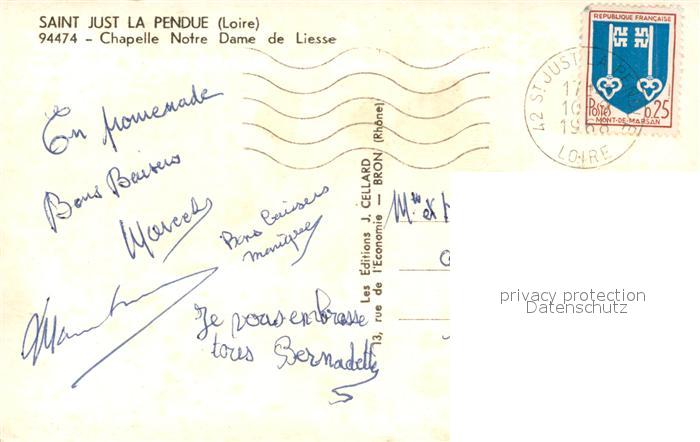 SAINT JUST LA PENDUE (Loire)
94474 - Chapelle Notre Dame de Liesse
REPUBLIQUE FRANÇAISE
Postes 0,25
MONT-DE-MARSAN
42 ST JUST
17
1968
LOIRE
En promenade
Bons Baisers
Marcel
Bons baisers
Monique
Je vous embrasse
tous Bernadette
Les Editions J. CELLARD
13, rue de l'Economie — BRON (Rhône)
privacy protection
Datenschutz